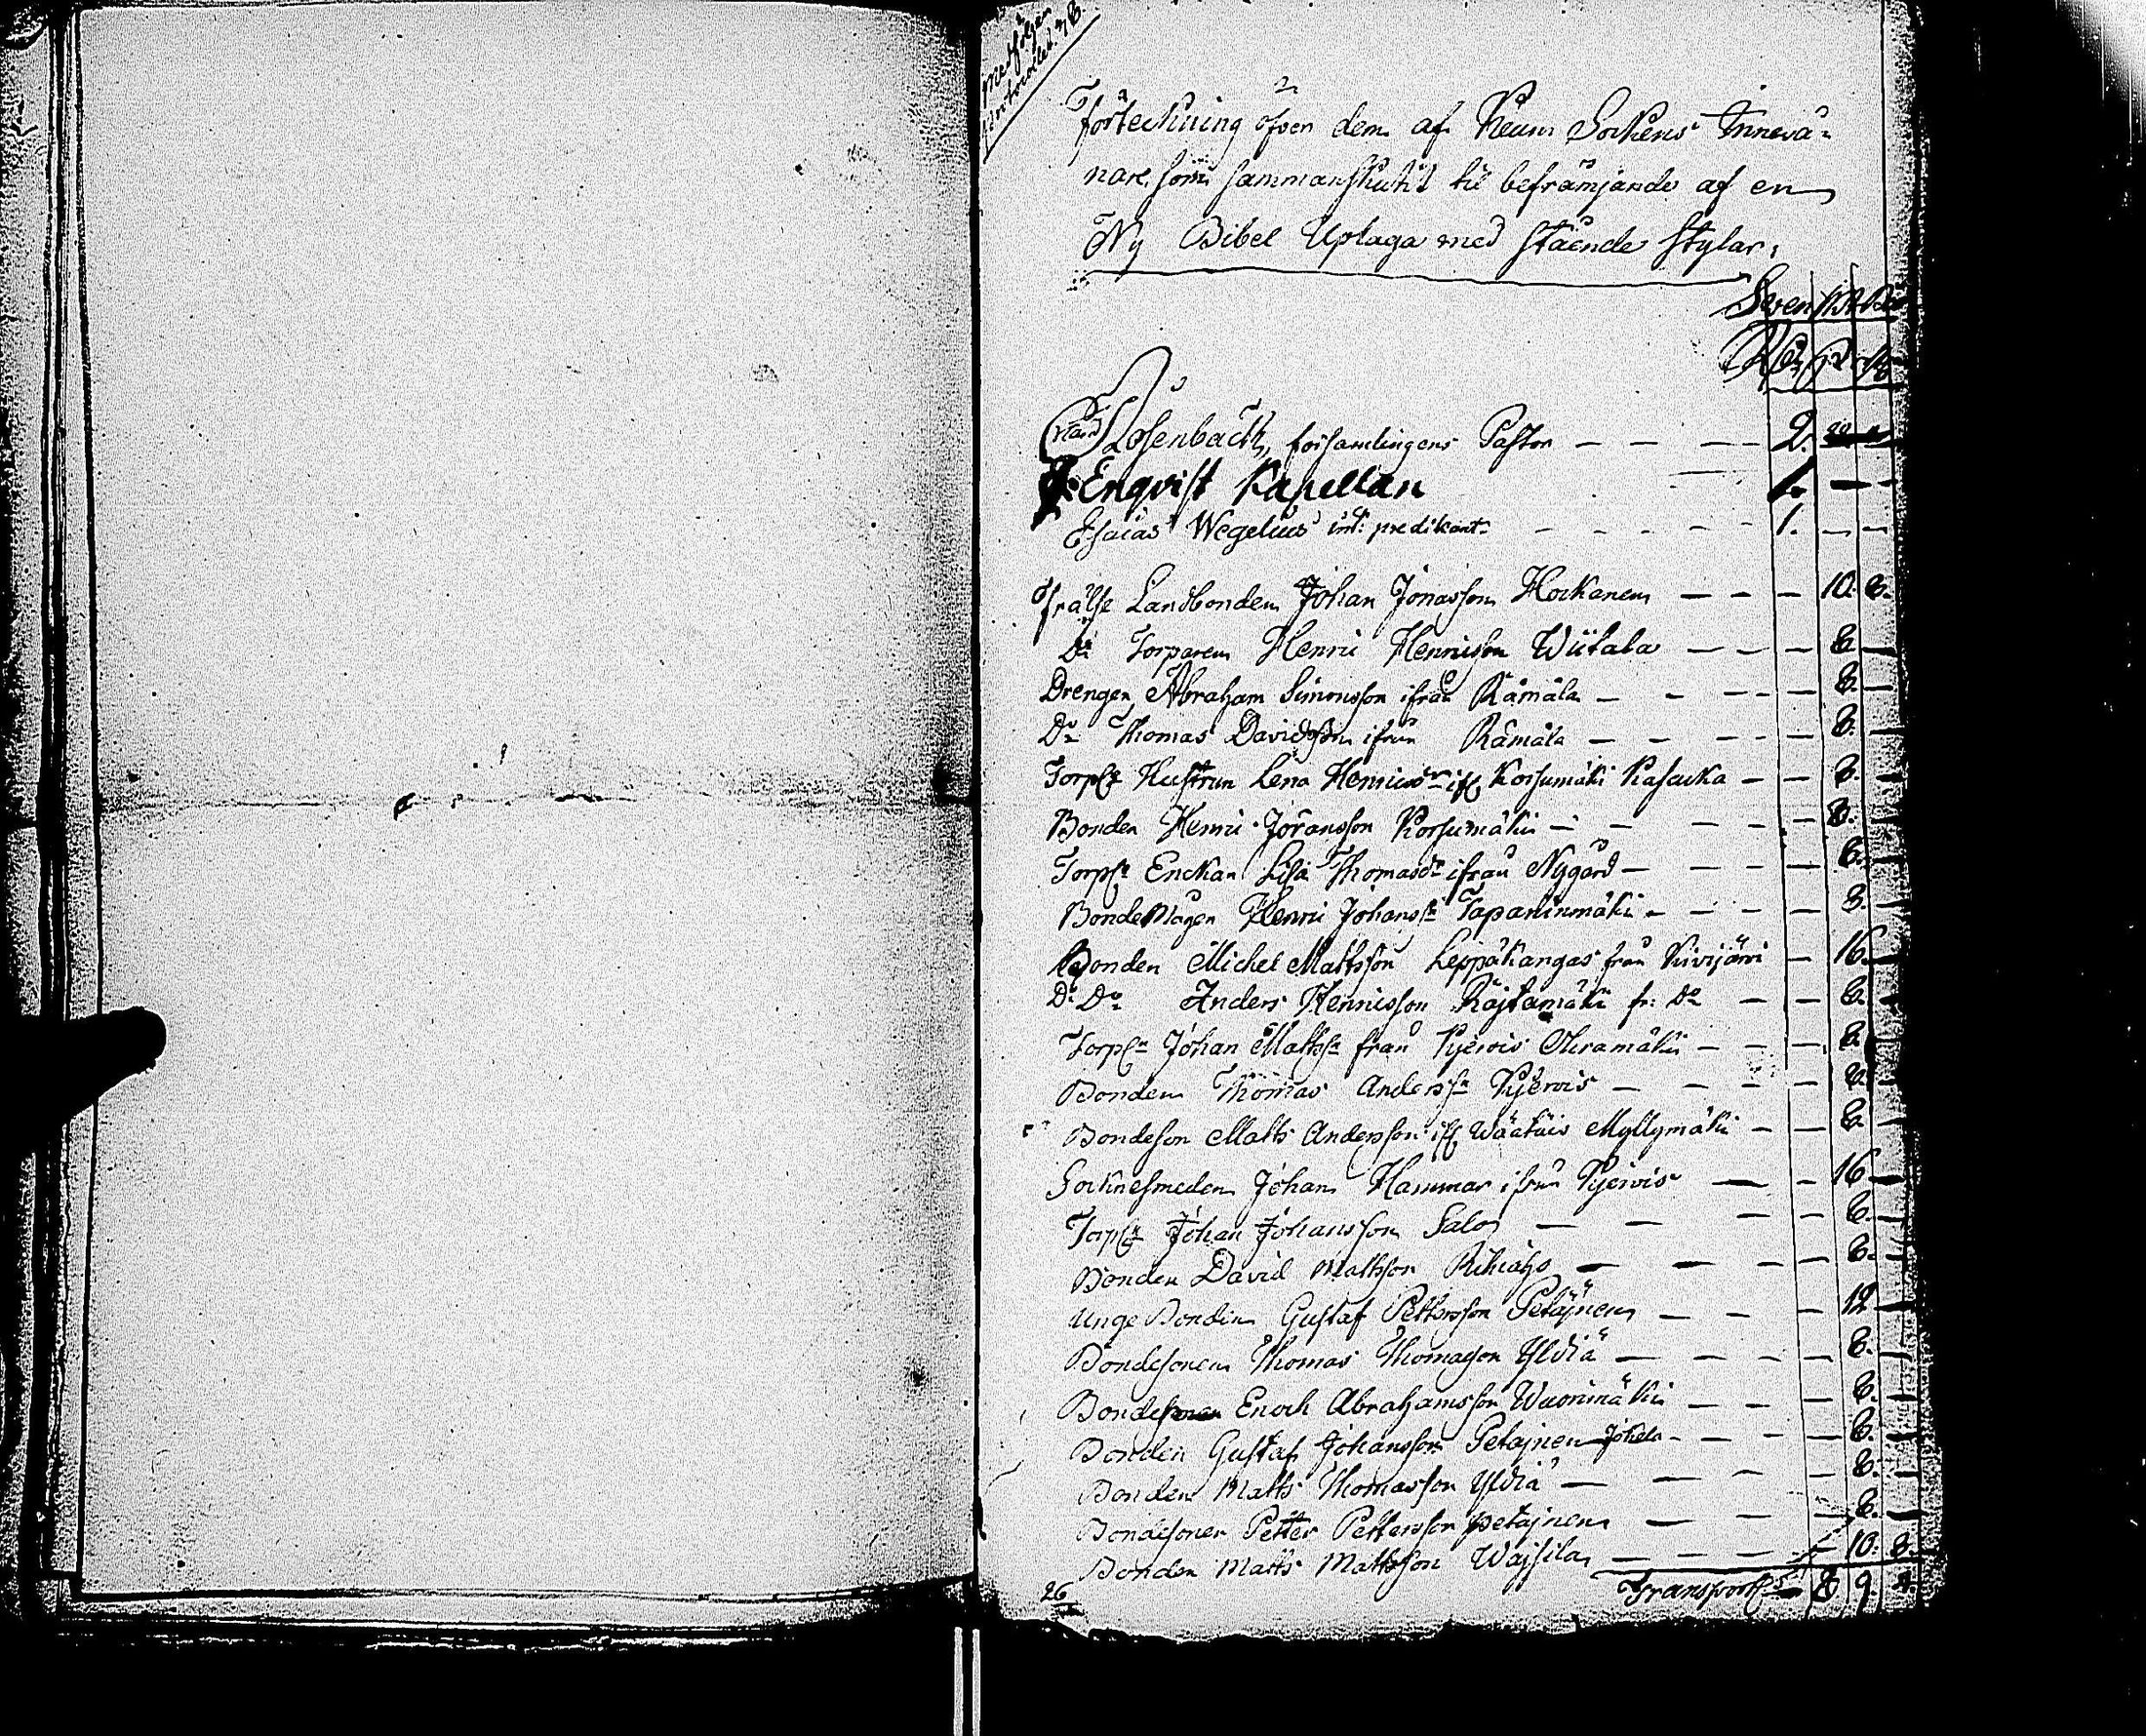 Förteckning öfver dem af Keuru Sockens Innevå-
nare, som sammanskutit til befrämjande af en
Ny Bibel Uplaga med stående stylar,
Svensk
Rosenbäck, församlingens Pastor — — — 2.
Enqvist Kapellan 1. — —
Esaias Wegelius predikant — — — — 1. — —
Frälse Landbonden Johan Jonasson Hockanen — — — 10. 8.
Do Torparen Henric Henricsson Wiitala — — — 8. —
Drengen Abraham Simonsson ifrån Rämälä — — — — 8. —
Do Thomas Davidsson ifrån Rämälä — — — — 8. —
Torps Hustrun Lena Henricsdr ifr Korsumäki — — 8. —
Bonden Henric Jöransson Korsumäki — — — — 8. —
Torps Enckan Lisa Thomasdr ifrån Nygård — — — — 8. —
Bondemågen Henric Johanss Tapaninmäki — — — — 8. —
Bonden Michel Mattsson Leppäkangas från Kivijärvi — 16. —
Do Do Anders Henricsson fr: do — — 8. —
Torp Johan Matts från Pyerois — — — 8. —
Bonden Thomas Anderss Pyerois — — — — 8. —
Bondeson Matts Andersson ifr Myllymäki — — 8. —
Socknesmeden Johan Hammar ifrån Pyerois — — 16 —
Torp Johan Johansson Salo — — — — 8. —
Bonden David Mattsson Rihiaho — — — — 8. —
Unge Bonden Gustaf Pettersson Petäjnen — — — 12 —
Bondesonen Thomas Thomasson Yldiä — — — — 8. —
Bondesonen Enoch Abrahamsson Wuorimäki — — — 8. —
Bonden Gustaf Johansson Petäjnen — — — — 8. —
Bonden Matts Thomasson Yldiä — — — — 8. —
Bondesonen Petter Pettersson Petäjnen — — — — 8. —
Bonden Matts Mattsson Wajsila — — — — 10. 8.
26 Transport 8 9.